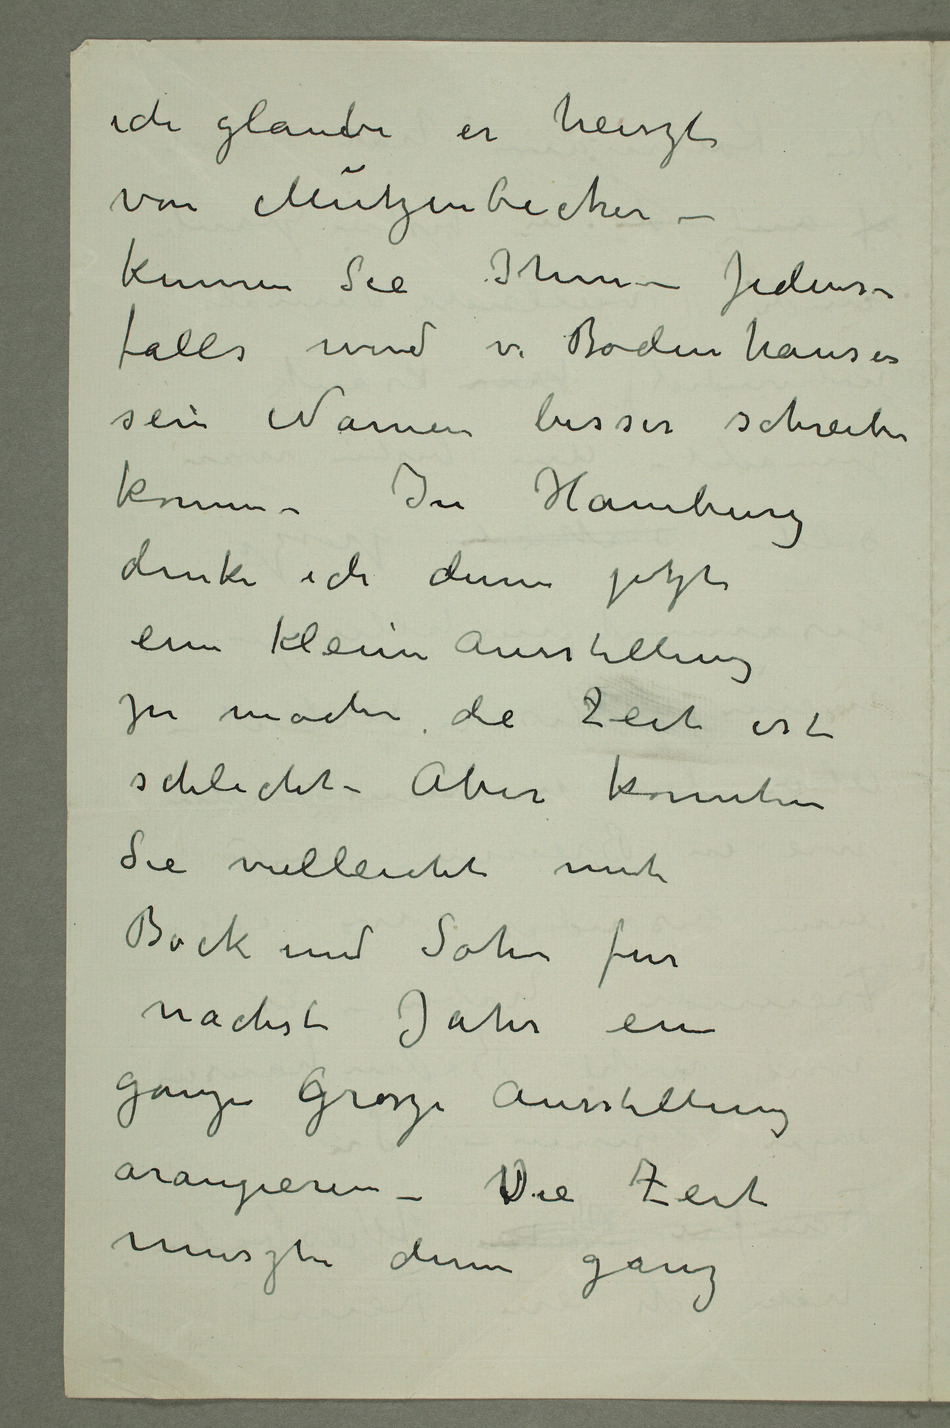 ich glaube er heiszt
von Mützenbecher –
kennen Sie Ihm – Jedens-
falls wird v. Bodenhausen
sein Namen besser schreiben
können – In Hamburg
denke ich denn jetzt
ein kleine Ausstellung
zu machen, die Zeit ist
schlecht – Aber könnten
Sie vielleicht mit
Bock und Sohn fur
nächste Jahr ein
ganze Grosze Ausstellung
arangieren – Die Zeit
muszte denn ganz